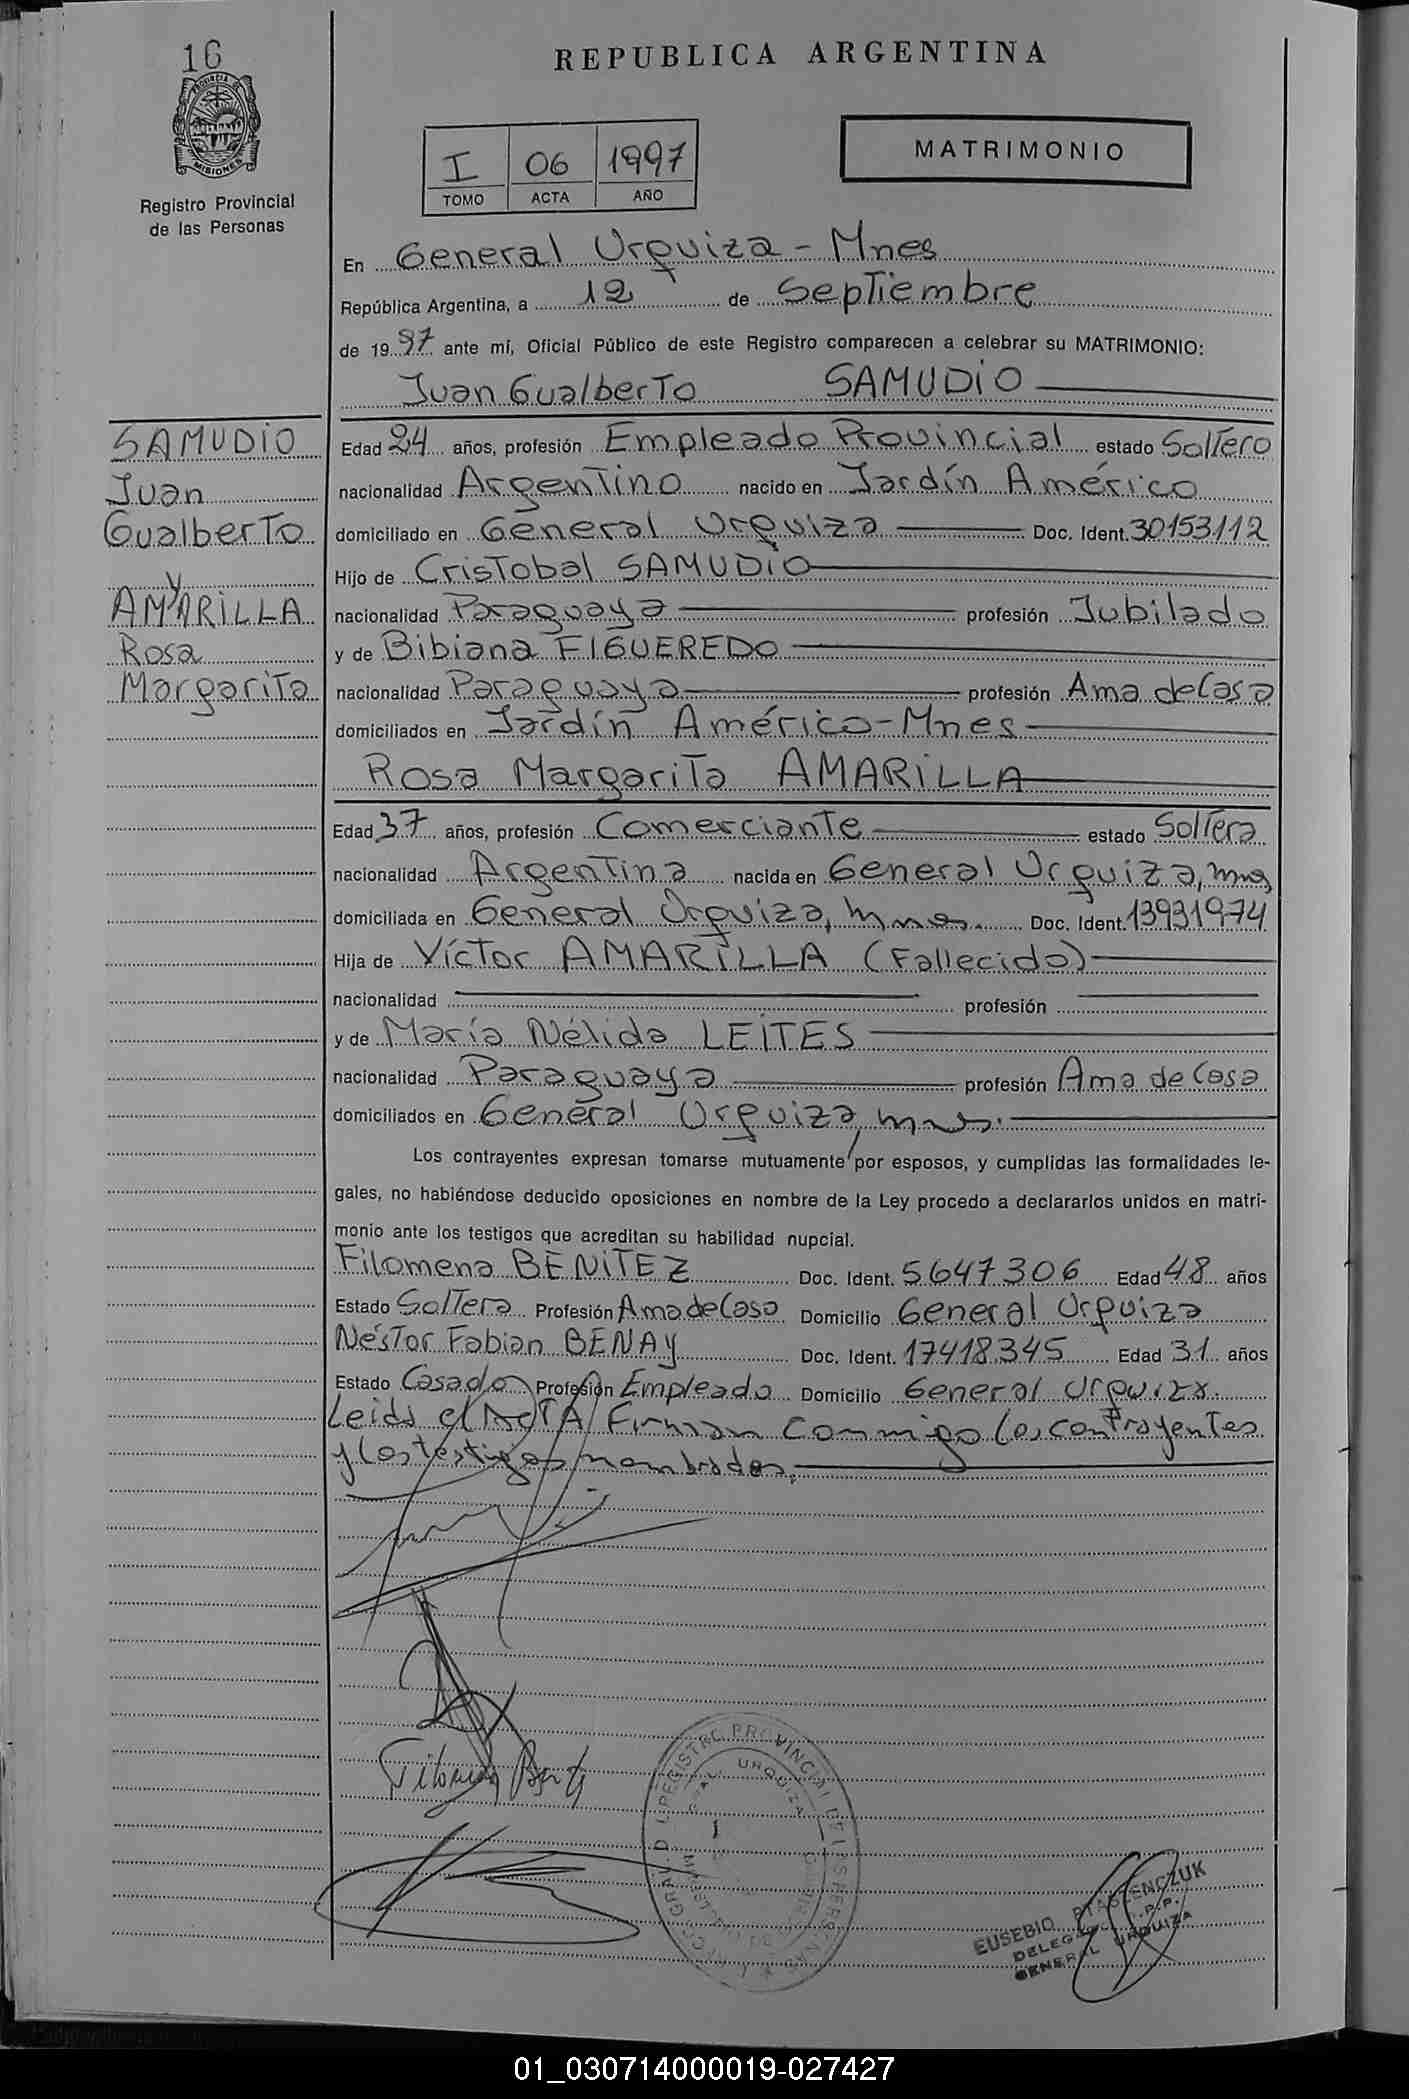 16
REPUBLICA ARGENTINA
PROVINCIA DE
MISIONES
Registro Provincial
de las Personas
I 06 1997
TOMO ACTA AÑO
MATRIMONIO
En General Urquiza - Mnes
República Argentina, a 12 de Septiembre
de 19 97 ante mí, Oficial Público de este Registro comparecen a celebrar su MATRIMONIO:
Juan Gualberto SAMUDIO
SAMUDIO
Juan
Gualberto
y
AMARILLA
Rosa
Margarita
Edad 24 años, profesión Empleado Provincial estado Soltero
nacionalidad Argentino nacido en Jardín América
domiciliado en General Urquiza Doc. Ident. 30153112
Hijo de Cristobal SAMUDIO
nacionalidad Paraguaya profesión Jubilado
y de Bibiana FIGUEREDO
nacionalidad Paraguaya profesión Ama de Casa
domiciliados en Jardín América-Mnes
Rosa Margarita AMARILLA
Edad 37 años, profesión Comerciante estado Soltera
nacionalidad Argentina nacida en General Urquiza, mnes
domiciliada en General Urquiza, Mnes. Doc. Ident. 13931974
Hija de Víctor AMARILLA (Fallecido)
nacionalidad profesión
y de María Nélida LEITES
nacionalidad Paraguaya profesión Ama de Casa
domiciliados en General Urquiza, mnes.
Los contrayentes expresan tomarse mutuamente por esposos, y cumplidas las formalidades le-
gales, no habiéndose deducido oposiciones en nombre de la Ley procedo a declararlos unidos en matri-
monio ante los testigos que acreditan su habilidad nupcial.
Filomena BENITEZ Doc. Ident. 5647306 Edad 48 años
Estado Soltera Profesión Ama de Casa Domicilio General Urquiza
Néstor Fabian BENAY Doc. Ident. 17418345 Edad 31 años
Estado Casado Profesión Empleado Domicilio General Urquiza.
Leida el ACTA, Firman conmigo los contrayentes
y los testigos nombrados,
REGISTRO PROVINCIAL DE LAS PERSONAS
GRAL. URQUIZA
EUSEBIO PTASZENCZUK
DELEGADO R.P.P.
GENERAL URQUIZA
01_030714000019-027427